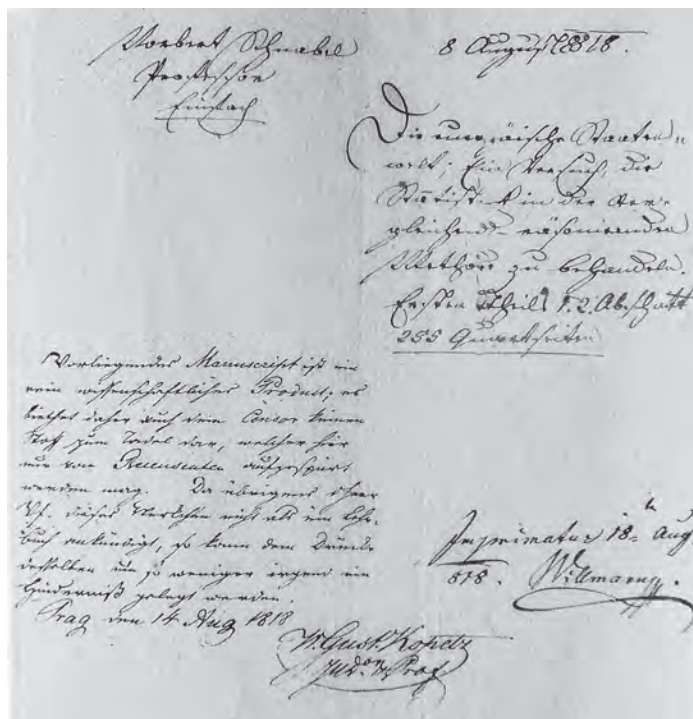 Norbert Schnabel
Professor
Einfach
8 August 1818.
Die europäische Staaten-
welt; Ein Versuch, die
Statistik in der ver-
gleichend-räsonierenden
Methode zu behandeln.
Ersten Theils 1. 2. Abschnitt
255 Quartseiten
Vorliegendes Manuscript ist ein
rein wissenschaftliches Product; es
biethet daher auch dem Censor keinen
Stoff zum Tadel dar, welcher hier
nur vom Recensenten aufgespürt
werden mag. Da übrigens
Vf. dieses Werkchen nicht als ein Lehr-
buch ankündigt, so kann dem Drucke
desselben um so weniger irgend ein
Hinderniß gelegt werden.
Prag den 14 Aug 1818
W. Gust. Kopetz
Prof.
Imprimatur 18 Aug.
818. Willmann